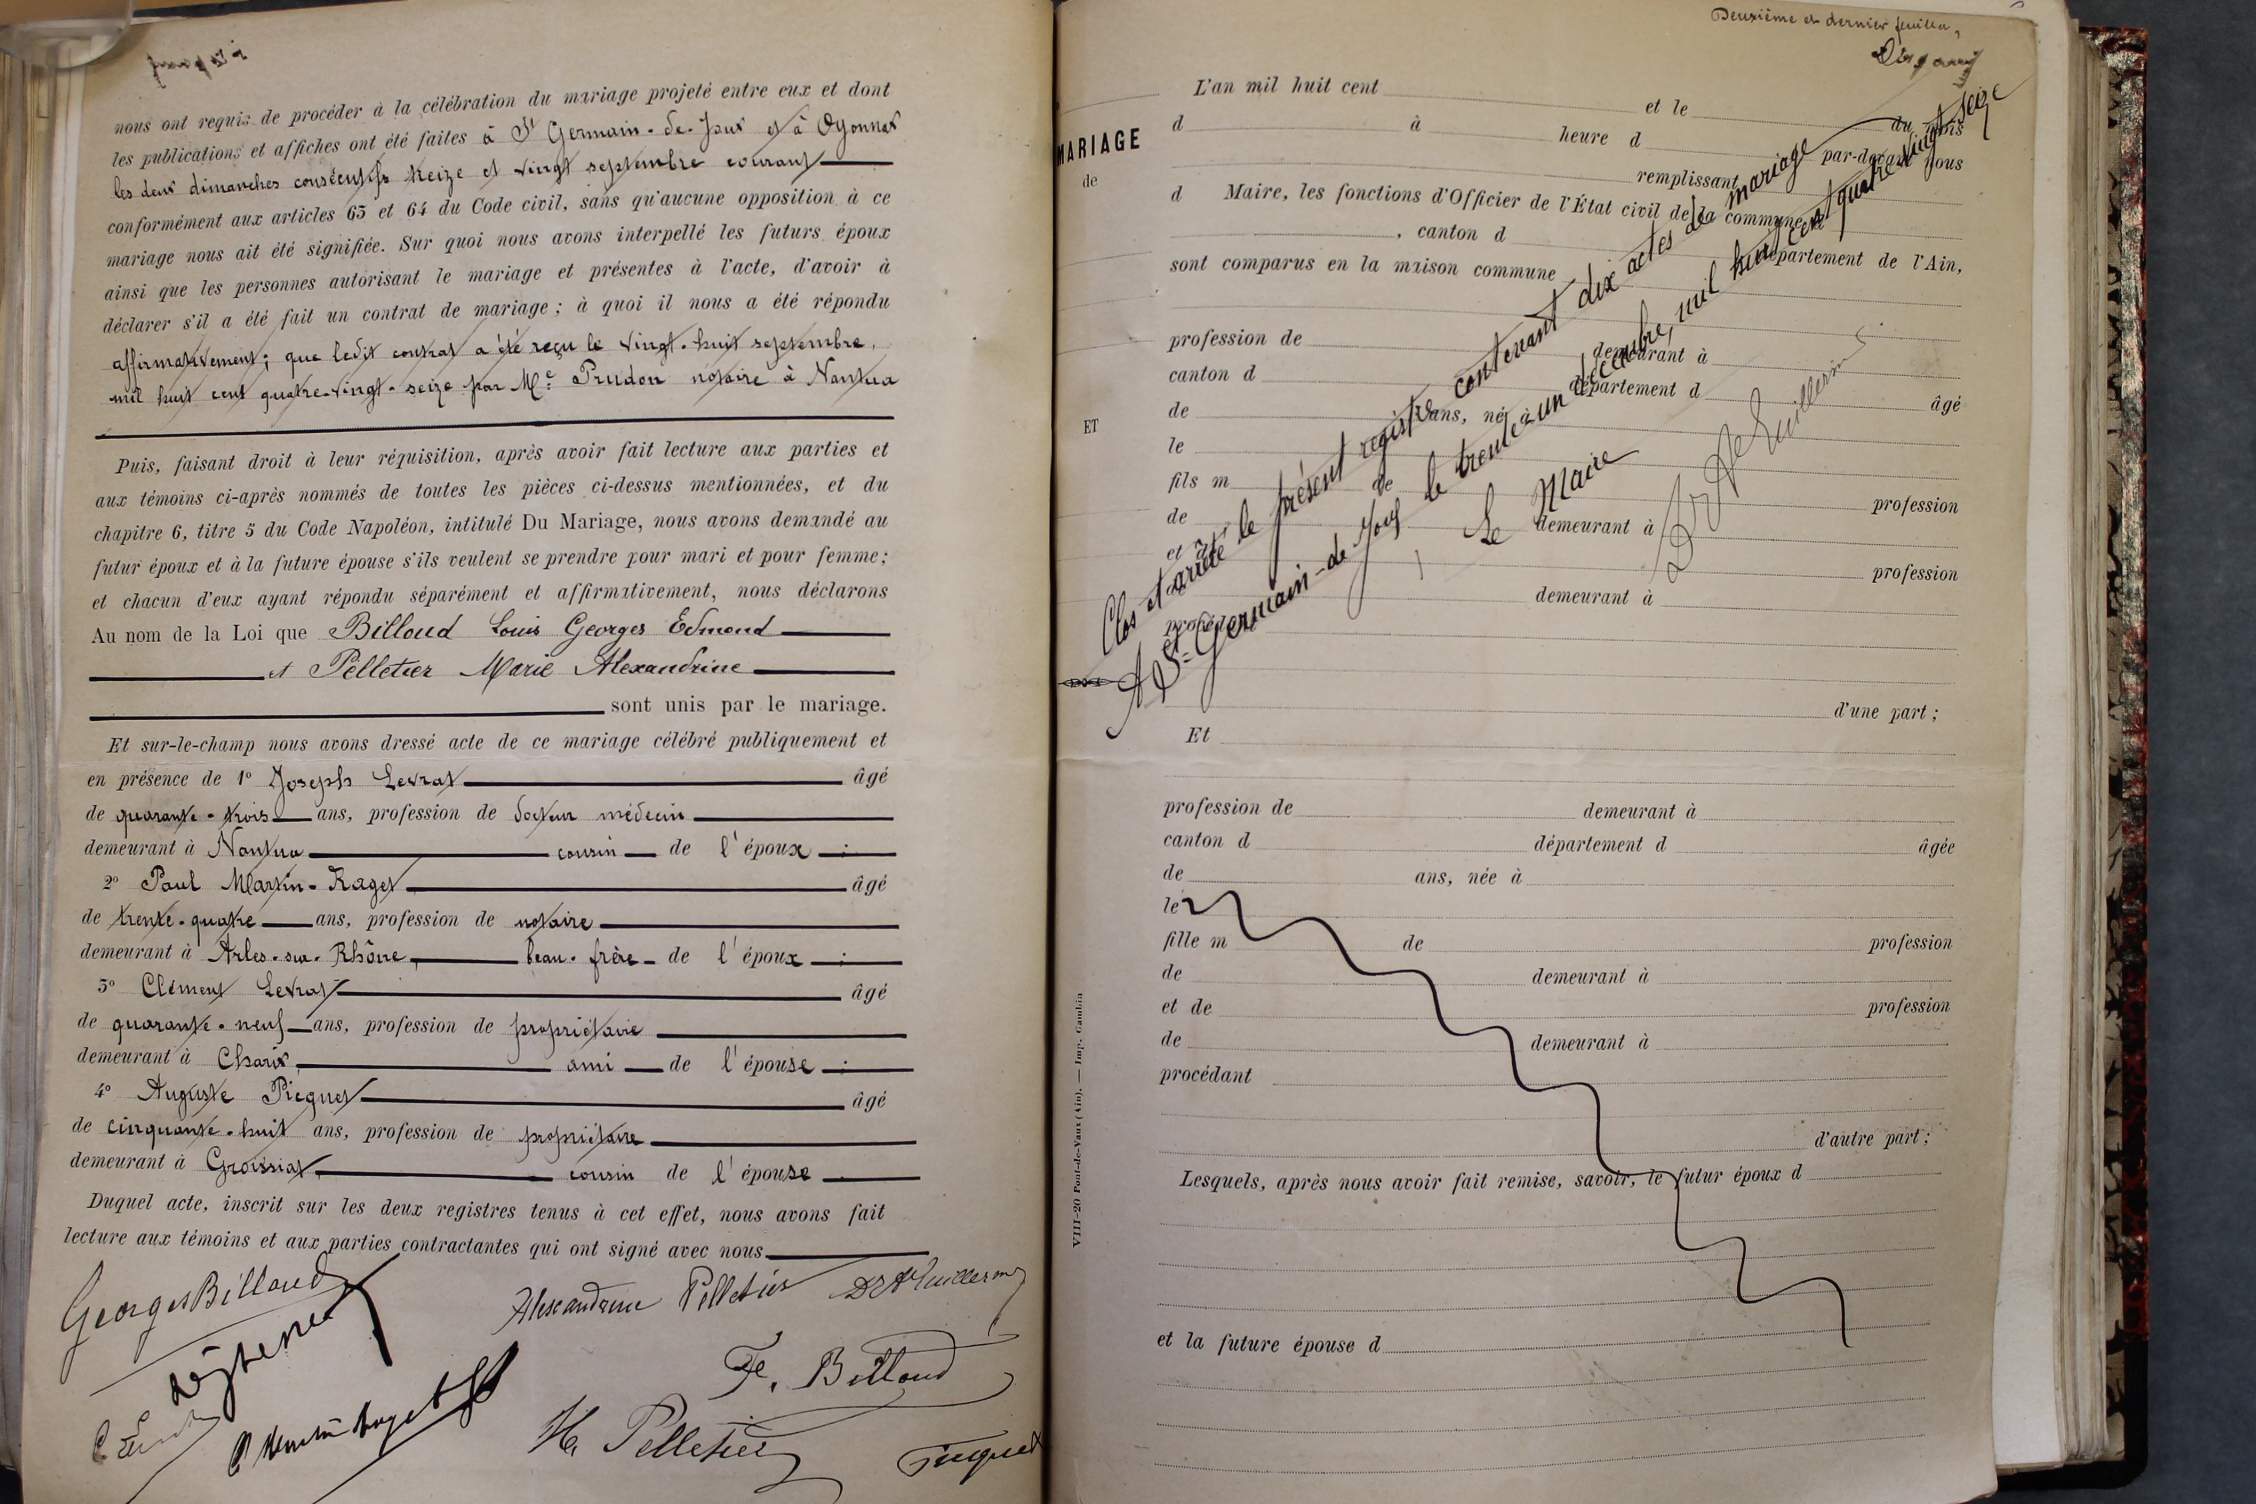 nous ont requis de procéder à la célébration du mariage projeté entre eux et dont
les publications et affiches ont été faites à St Germain-de-Joux et à Oyonnax
les deux dimanches consécutifs treize et vingt septembre courant
conformément aux articles 63 et 64 du Code civil, sans qu'aucune opposition à ce
mariage nous ait été signifiée. Sur quoi nous avons interpellé les futurs époux
ainsi que les personnes autorisant le mariage et présentes à l'acte, d'avoir à
déclarer s'il a été fait un contrat de mariage ; à quoi il nous a été répondu
affirmativement ; que ledit contrat a été reçu le vingt-huit septembre,
mil huit cent quatre-vingt-seize par Me Prudon notaire à Nantua
Puis, faisant droit à leur réquisition, après avoir fait lecture aux parties et
aux témoins ci-après nommés de toutes les pièces ci-dessus mentionnées, et du
chapitre 6, titre 5 du Code Napoléon, intitulé Du Mariage, nous avons demandé au
futur époux et à la future épouse s'ils veulent se prendre pour mari et pour femme ;
et chacun d'eux ayant répondu séparément et affirmativement, nous déclarons
Au nom de la Loi que Billoud Louis Georges Edmond
et Pelletier Marie Alexandrine
sont unis par le mariage.
Et sur-le-champ nous avons dressé acte de ce mariage célébré publiquement et
en présence de 1° Joseph Levrat âgé
de quarante-trois ans, profession de docteur médecin
demeurant à Nantua cousin de l'époux ;
2° Paul Martin-Raget âgé
de trente-quatre ans, profession de notaire
demeurant à Arles-sur-Rhône, beau-frère de l'époux ;
3° Clément Levrat âgé
de quarante-neuf ans, profession de propriétaire
demeurant à Charix, ami de l'épouse ;
4° Auguste Picquet âgé
de cinquante-huit ans, profession de propriétaire
demeurant à Groissiat, cousin de l'épouse
Duquel acte, inscrit sur les deux registres tenus à cet effet, nous avons fait
lecture aux témoins et aux parties contractantes qui ont signé avec nous
Georges Billoud
Alexandrine Pelletier
Dr A Guillermin
P Martin Raget
Fe. Billoud
H. Pelletier
Picquet
Deuxième et dernier feuillet,
MARIAGE
de
ET
L'an mil huit cent et le
d à heure d du mois
par-devant nous
remplissant
d Maire, les fonctions d'Officier de l'État civil de la commune d
, canton d département de l'Ain,
sont comparus en la maison commune
profession de demeurant à
canton d département d
de ans, né à âgé
le
fils m de
de demeurant à profession
et de
demeurant à profession
procédant
d'une part ;
Et
profession de demeurant à
canton d département d âgée
de ans, née à
le
fille m de profession
de demeurant à
et de profession
de demeurant à
procédant
d'autre part ;
Lesquels, après nous avoir fait remise, savoir, le futur époux d
et la future épouse d
Clos et arrêté le présent registre contenant dix actes de mariage
A St-Germain-de-Joux le trente-un décembre, mil huit cent quatre vingt seize
Le Maire
Dr A Guillermin
VIII-20 Pont-de-Vaux (Ain). — Imp. Cambin